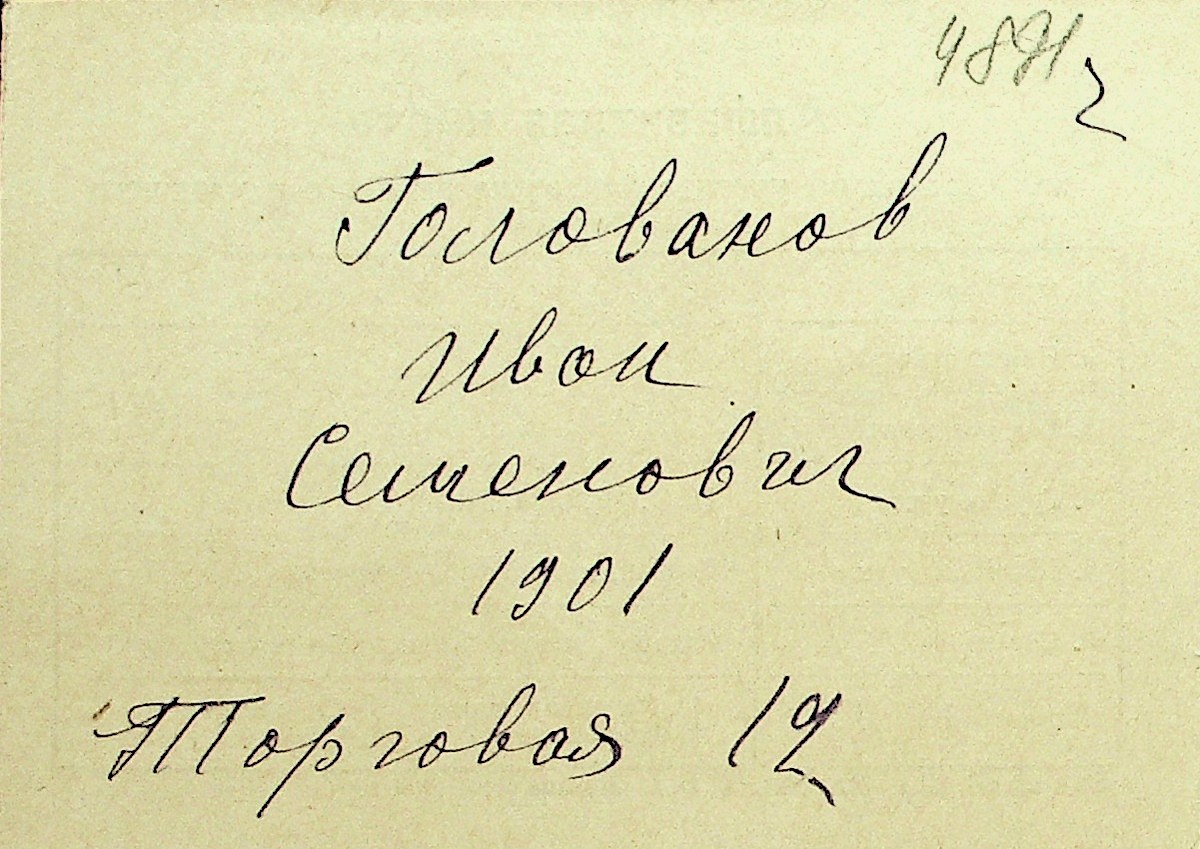 Голованов
Иван
Семенович
1901
Торговая 12